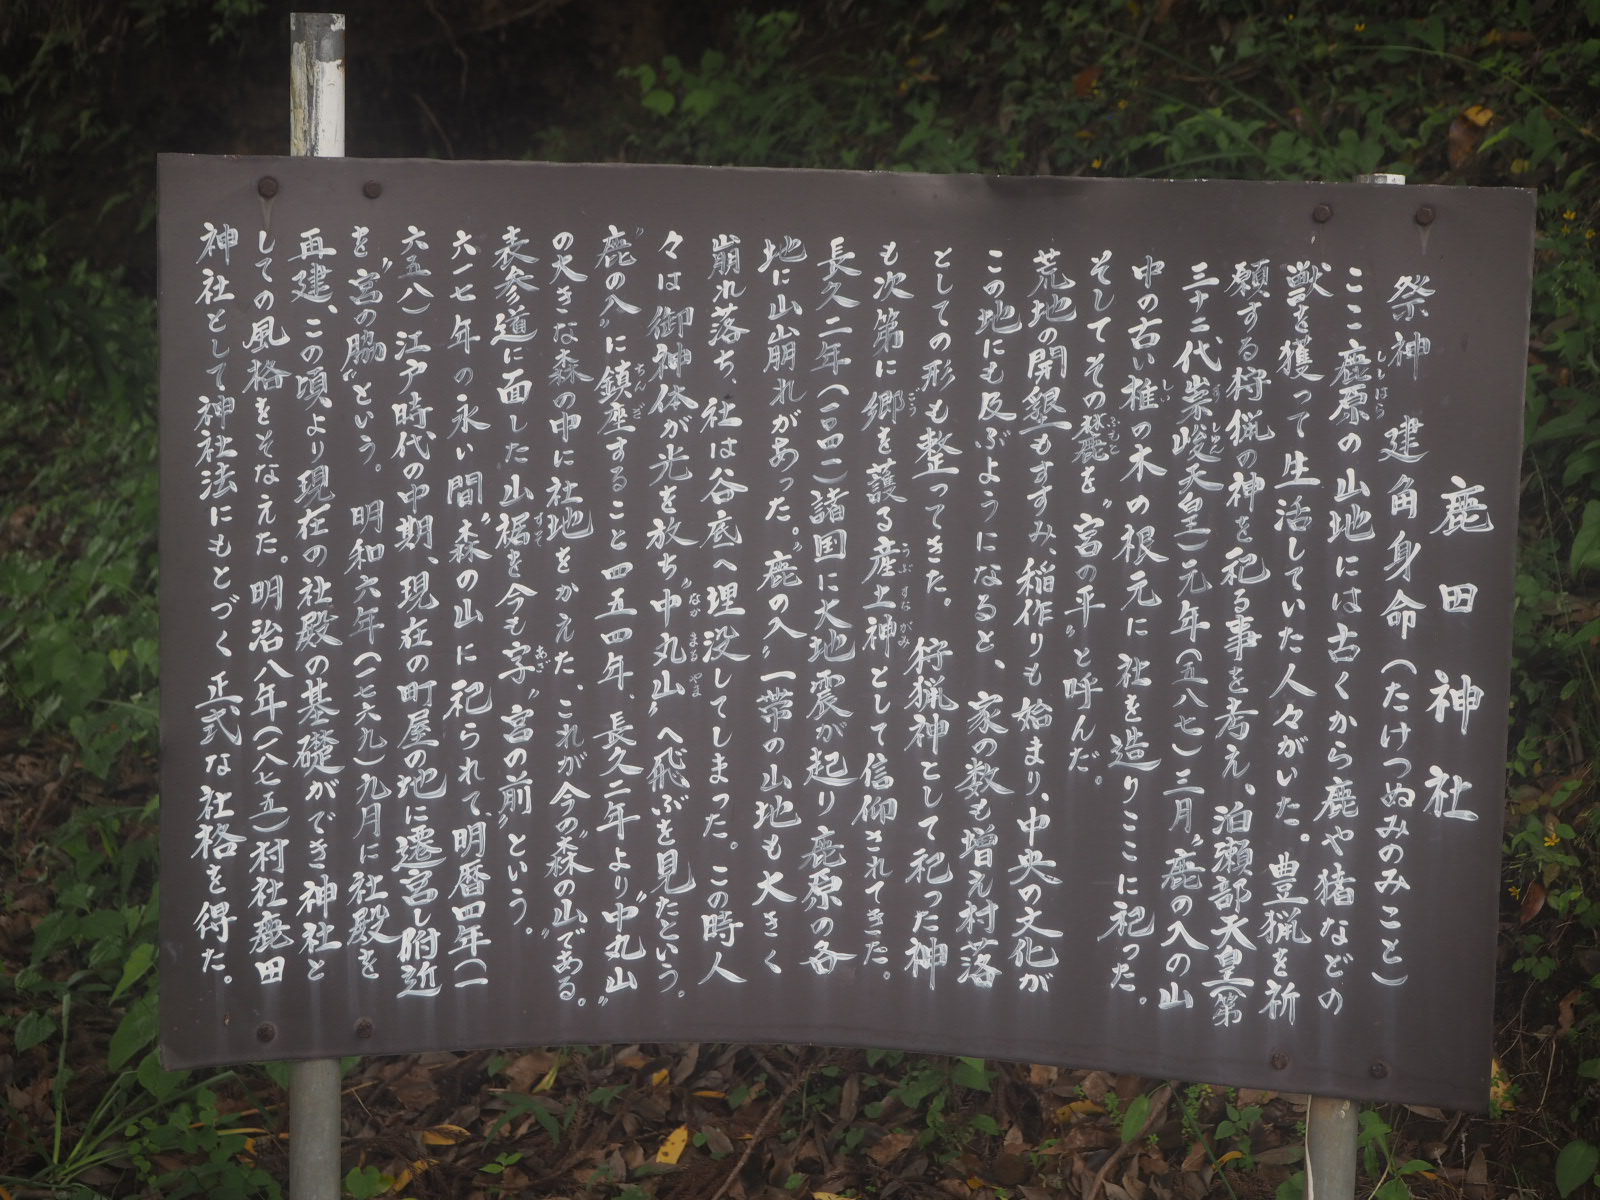 鹿田神社
祭神 建角身命(たけつぬみのみこと)
ここ鹿原の山地には古くから鹿や猪などの
獣を獲って生活していた人々がいた。豊猟を祈
願する狩猟の神を祀る事を考え、泊瀬部天皇(第
三十二代崇峻天皇)元年(五八七)三月〝鹿の入の山
中の古い椎の木の根元に社を造りここに祀った。
そしてその麓を〝宮の平〟と呼んだ。
荒地の開墾もすすみ、稲作りも始まり、中央の文化が
この地にも及ぶようになると、家の数も増え村落
としての形も整ってきた。狩猟神として祀った神
も次第に郷を護る産土神として信仰されてきた。
長久二年(一〇四一)諸国に大地震が起り鹿原の各
地に山崩れがあった。〝鹿の入〟一帯の山地も大きく
崩れ落ち、社は谷底へ埋没してしまった。この時人
々は御神体が光を放ち〝中丸山〟へ飛ぶを見たという。
〝鹿の入〟に鎮座すること四五四年、長久二年より〝中丸山〟
の大きな森の中に社地をかえた、これが今の〝森の山〟である。
表参道に面した山裾を今も字〝宮の前〟という。
六一七年の永い間〝森の山に祀られて、明暦四年(一
六五八)江戸時代の中期、現在の町屋の地に遷宮し附近
を〝宮の脇〟という。明和六年(一七六九)九月に社殿を
再建、この頃より現在の社殿の基礎ができ神社と
しての風格をそなえた。明治八年(一八七五)村社鹿田
神社として神社法にもとづく正式な社格を得た。